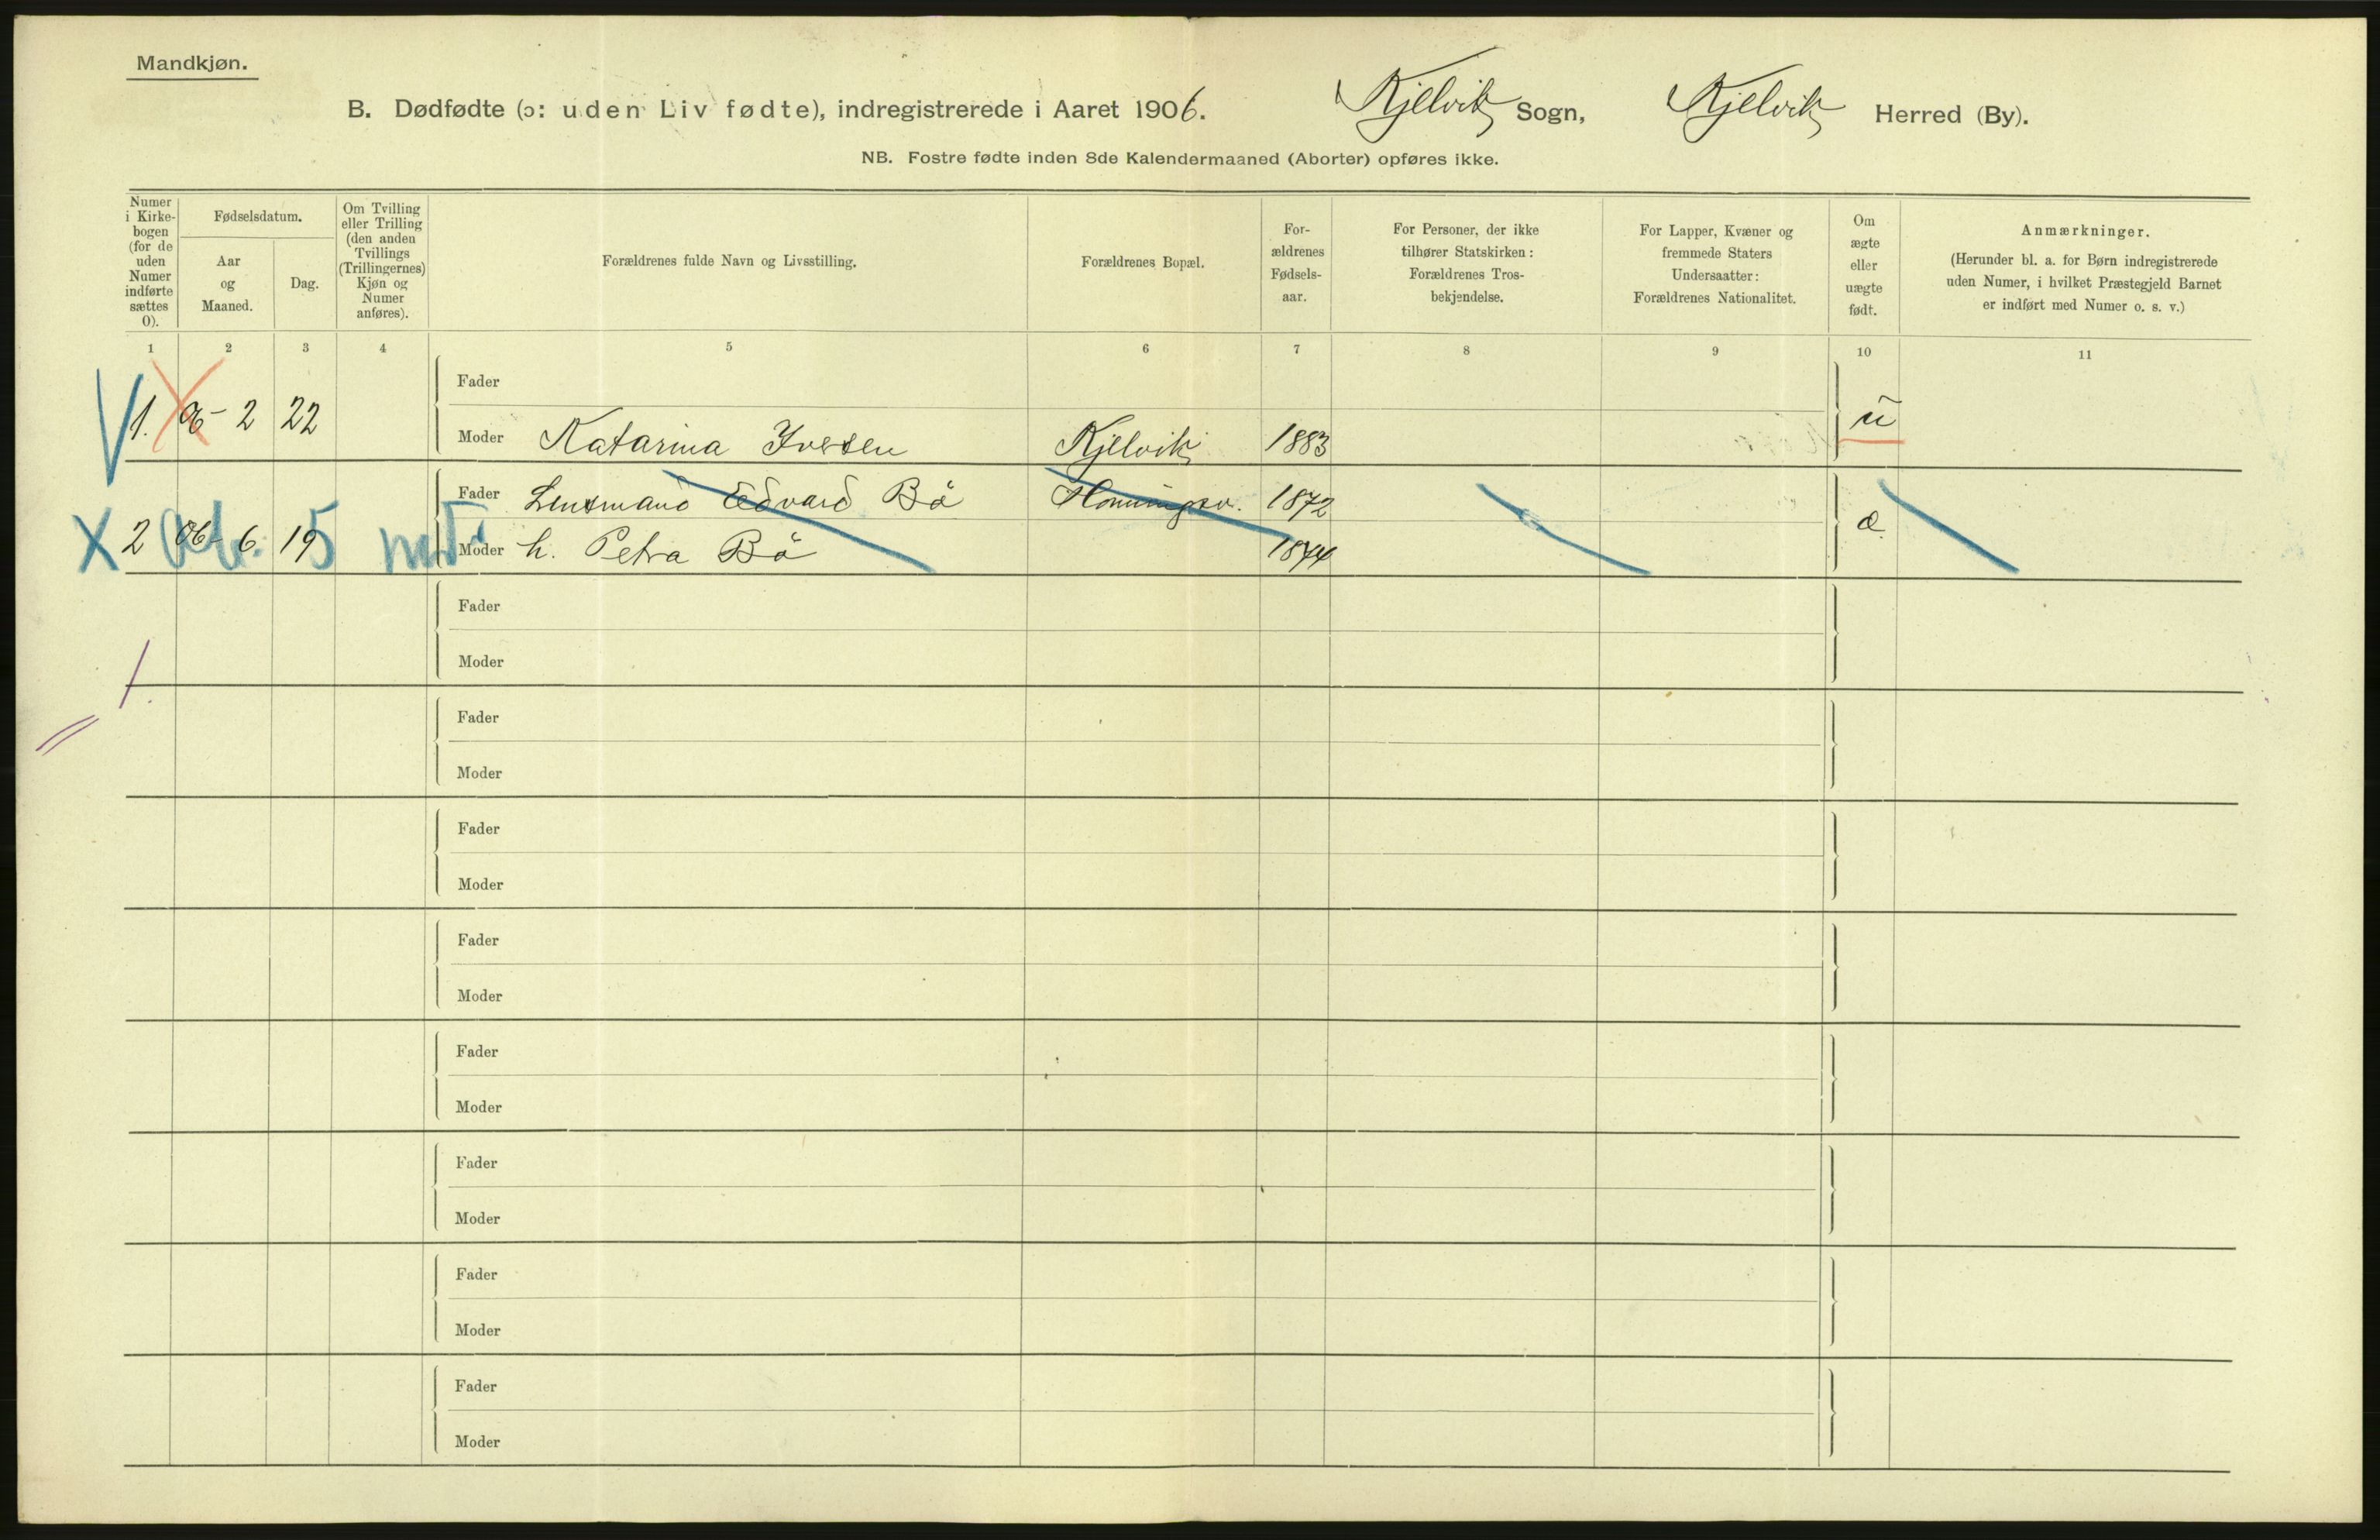 Mandkjøn.
B. Dødfødte (ɔ: uden Liv fødte), indregistrerede i Aaret 1906. Kjelvik Sogn, Kjelvik Herred (By).
NB. Fostre fødte inden 8de Kalendermaaned (Aborter) opføres ikke.
Numer
i Kirke-
bogen
(for de
uden
Numer
indførte
sættes
0).
Fødselsdatum.
Aar
og
Maaned.
Dag.
Om Tvilling
eller Trilling
(den anden
Tvillings
(Trillingernes)
Kjøn og
Numer
anføres).
Forældrenes fulde Navn og Livsstilling.
Forældrenes Bopæl.
For-
ældrenes
Fødsels-
aar.
For Personer, der ikke
tilhører Statskirken:
Forældrenes Tros-
bekjendelse.
For Lapper, Kvæner og
fremmede Staters
Undersaatter:
Forældrenes Nationalitet.
Om
ægte
eller
uægte
født.
Anmærkninger.
(Herunder bl. a. for Børn indregistrerede
uden Numer, i hvilket Præstegjeld Barnet
er indført med Numer o. s. v.)
1 2 3 4 5 6 7 8 9 10 11
Fader
1. 2 22 ū
Moder Katarina Iversen Kjelvik 1883
Fader Lensmand Edvard Bö Honningsv. 1872
2 06- 6 19 æ
Moder h. Petra Bö
Fader
Moder
Fader
Moder
Fader
Moder
Fader
Moder
Fader
Moder
Fader
Moder
Fader
Moder
Fader
Moder